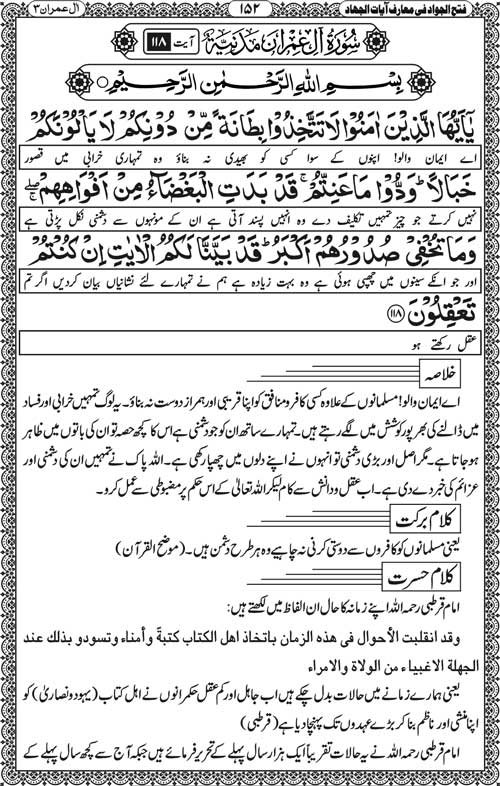 فتح الجواد فی معارف آیات الجهاد
۱۵۲
آل عمران ۳
سُوْرَةُ آلِ عِمْرَانَ مَدَنِيَّةٌ آیت ۱۱۸
بِسْمِ اللهِ الرَّحْمٰنِ الرَّحِيْمِ
يٰٓاَيُّهَا الَّذِيْنَ اٰمَنُوْا لَا تَتَّخِذُوْا بِطَانَةً مِّنْ دُوْنِكُمْ لَا يَاْلُوْنَكُمْ
اے ایمان والو! اپنوں کے سوا کسی کو بھیدی نہ بناؤ وہ تمہاری خرابی میں قصور
خَبَالًا ؕ وَدُّوْا مَا عَنِتُّمْ ۚ قَدْ بَدَتِ الْبَغْضَآءُ مِنْ اَفْوَاهِهِمْ ۖۚ
نہیں کرتے جو چیز تمہیں تکلیف دے وہ انہیں پسند آتی ہے ان کے مونہوں سے دشمنی نکل پڑتی ہے
وَمَا تُخْفِيْ صُدُوْرُهُمْ اَكْبَرُ ؕ قَدْ بَيَّنَّا لَكُمُ الْاٰيٰتِ اِنْ كُنْتُمْ
اور جو انکے سینوں میں چھپی ہوئی ہے وہ بہت زیادہ ہے ہم نے تمہارے لئے نشانیاں بیان کردیں اگر تم
تَعْقِلُوْنَ ۱۱۸
عقل رکھتے ہو
خلاصہ
اے ایمان والو! مسلمانوں کے علاوہ کسی کافر و منافق کو اپنا قریبی اور ہمراز دوست نہ بناؤ۔ یہ لوگ تمہیں خرابی اور فساد
میں ڈالنے کی بھرپور کوشش میں لگے رہتے ہیں۔ تمہارے ساتھ ان کو جو دشمنی ہے اس کا کچھ حصہ تو ان کی باتوں میں ظاہر
ہو جاتا ہے۔ مگر اصل اور بڑی دشمنی تو انہوں نے اپنے دلوں میں چھپا رکھی ہے۔ اللہ پاک نے تمہیں ان کی دشمنی اور
عزائم کی خبر دے دی ہے۔ اب عقل و دانش سے کام لیکر اللہ تعالیٰ کے اس حکم پر مضبوطی سے عمل کرو۔
کلام برکت
یعنی مسلمانوں کو کافروں سے دوستی کرنی نہ چاہیے وہ ہر طرح دشمن ہیں۔ (موضح القرآن)
کلام حسرت
امام قرطبی رحمہ اللہ اپنے زمانہ کا حال ان الفاظ میں لکھتے ہیں:
وقد انقلبت الأحوال فی هذه الزمان باتخاذ اهل الكتاب كتبةً وأمناء وتسودو بذلك عند
الجهلة الاغبیاء من الولاة والامراء
یعنی ہمارے زمانے میں حالات بدل چکے ہیں اب جاہل اور کم عقل حکمرانوں نے اہل کتاب (یہود و نصاریٰ) کو
اپنا منشی اور ناظم بنا کر بڑے عہدوں تک پہنچا دیا ہے (قرطبی)
امام قرطبی رحمہ اللہ نے یہ حالات تقریباً ایک ہزار سال پہلے کے تحریر فرمائے ہیں جبکہ آج سے کچھ سال پہلے کے